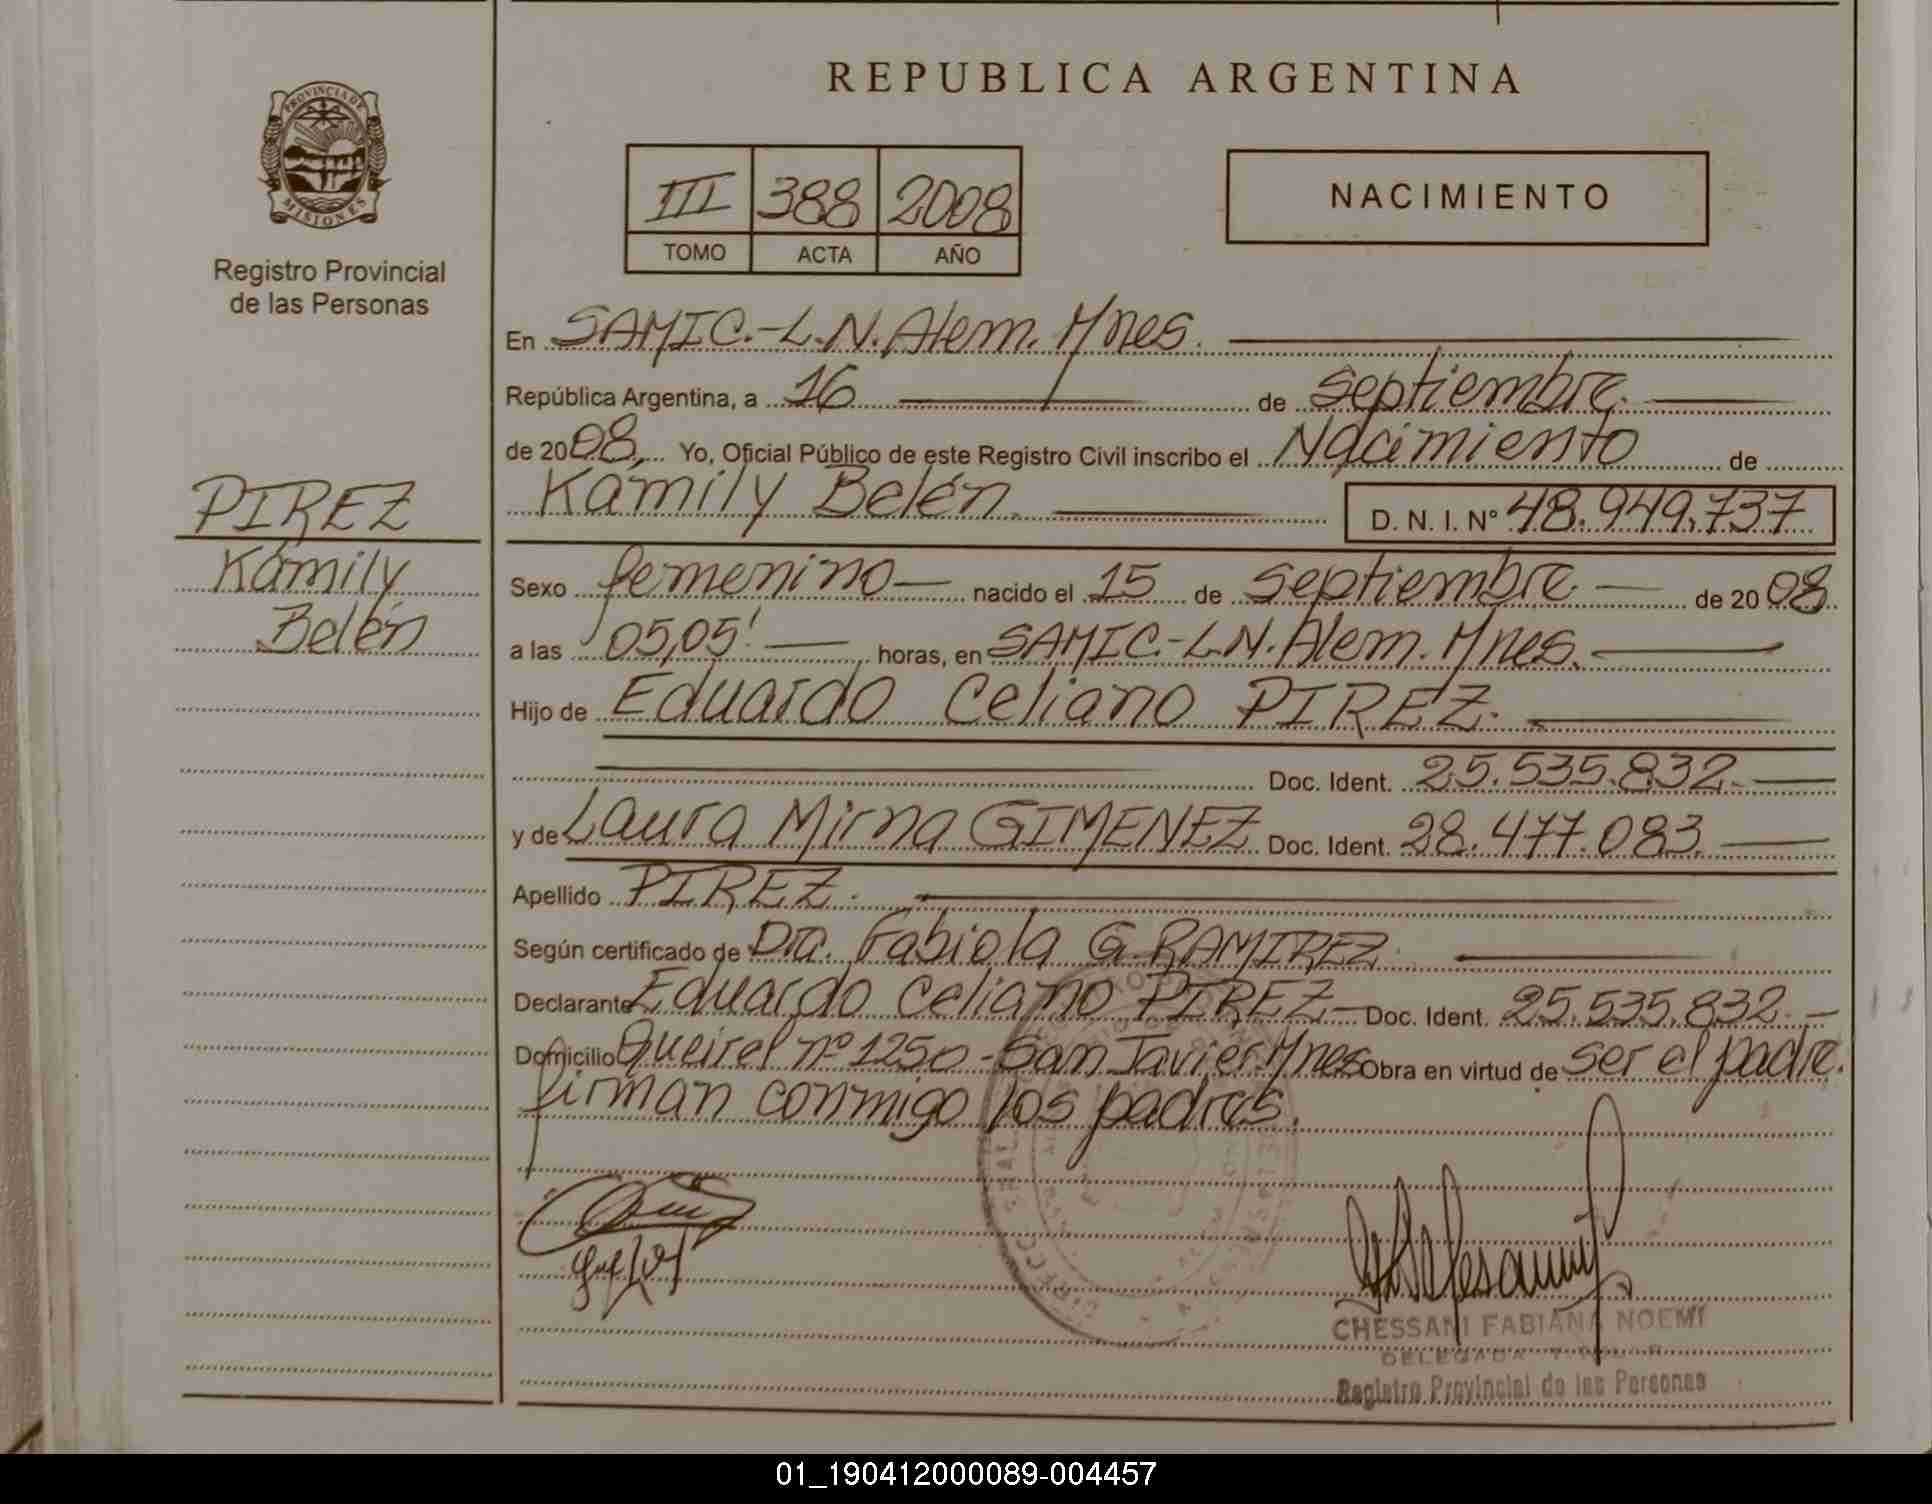 REPUBLICA ARGENTINA
PROVINCIA DE
MISIONES
Registro Provincial
de las Personas
III 388 2008
TOMO ACTA AÑO
NACIMIENTO
En SAMIC.-L.N.Alem. Mnes.
República Argentina, a 16 de septiembre.
de 2008, Yo, Oficial Público de este Registro Civil inscribo el Nacimiento de
Kámily Belén. D. N. I. N° 48.949.737
PIREZ
Kámily
Belén
Sexo femenino nacido el 15 de septiembre de 2008
a las 05,05' horas, en SAMIC.-L.N.Alem. Mnes.
Hijo de Eduardo Celiano PIREZ.
Doc. Ident. 25.535.832.
y de Laura Mirna GIMENEZ Doc. Ident. 28.477.083.
Apellido PIREZ.
Según certificado de Dra. Fabiola G. RAMIREZ.
Declarante Eduardo Celiano PIREZ Doc. Ident. 25.535.832.
Domicilio Queirel nº 1250 - San Javier. Mnes Obra en virtud de ser el padre.
firman conmigo los padres.
CHESSANI FABIANA NOEMI
DELEGADA
Registro Provincial de las Personas
01_190412000089-004457